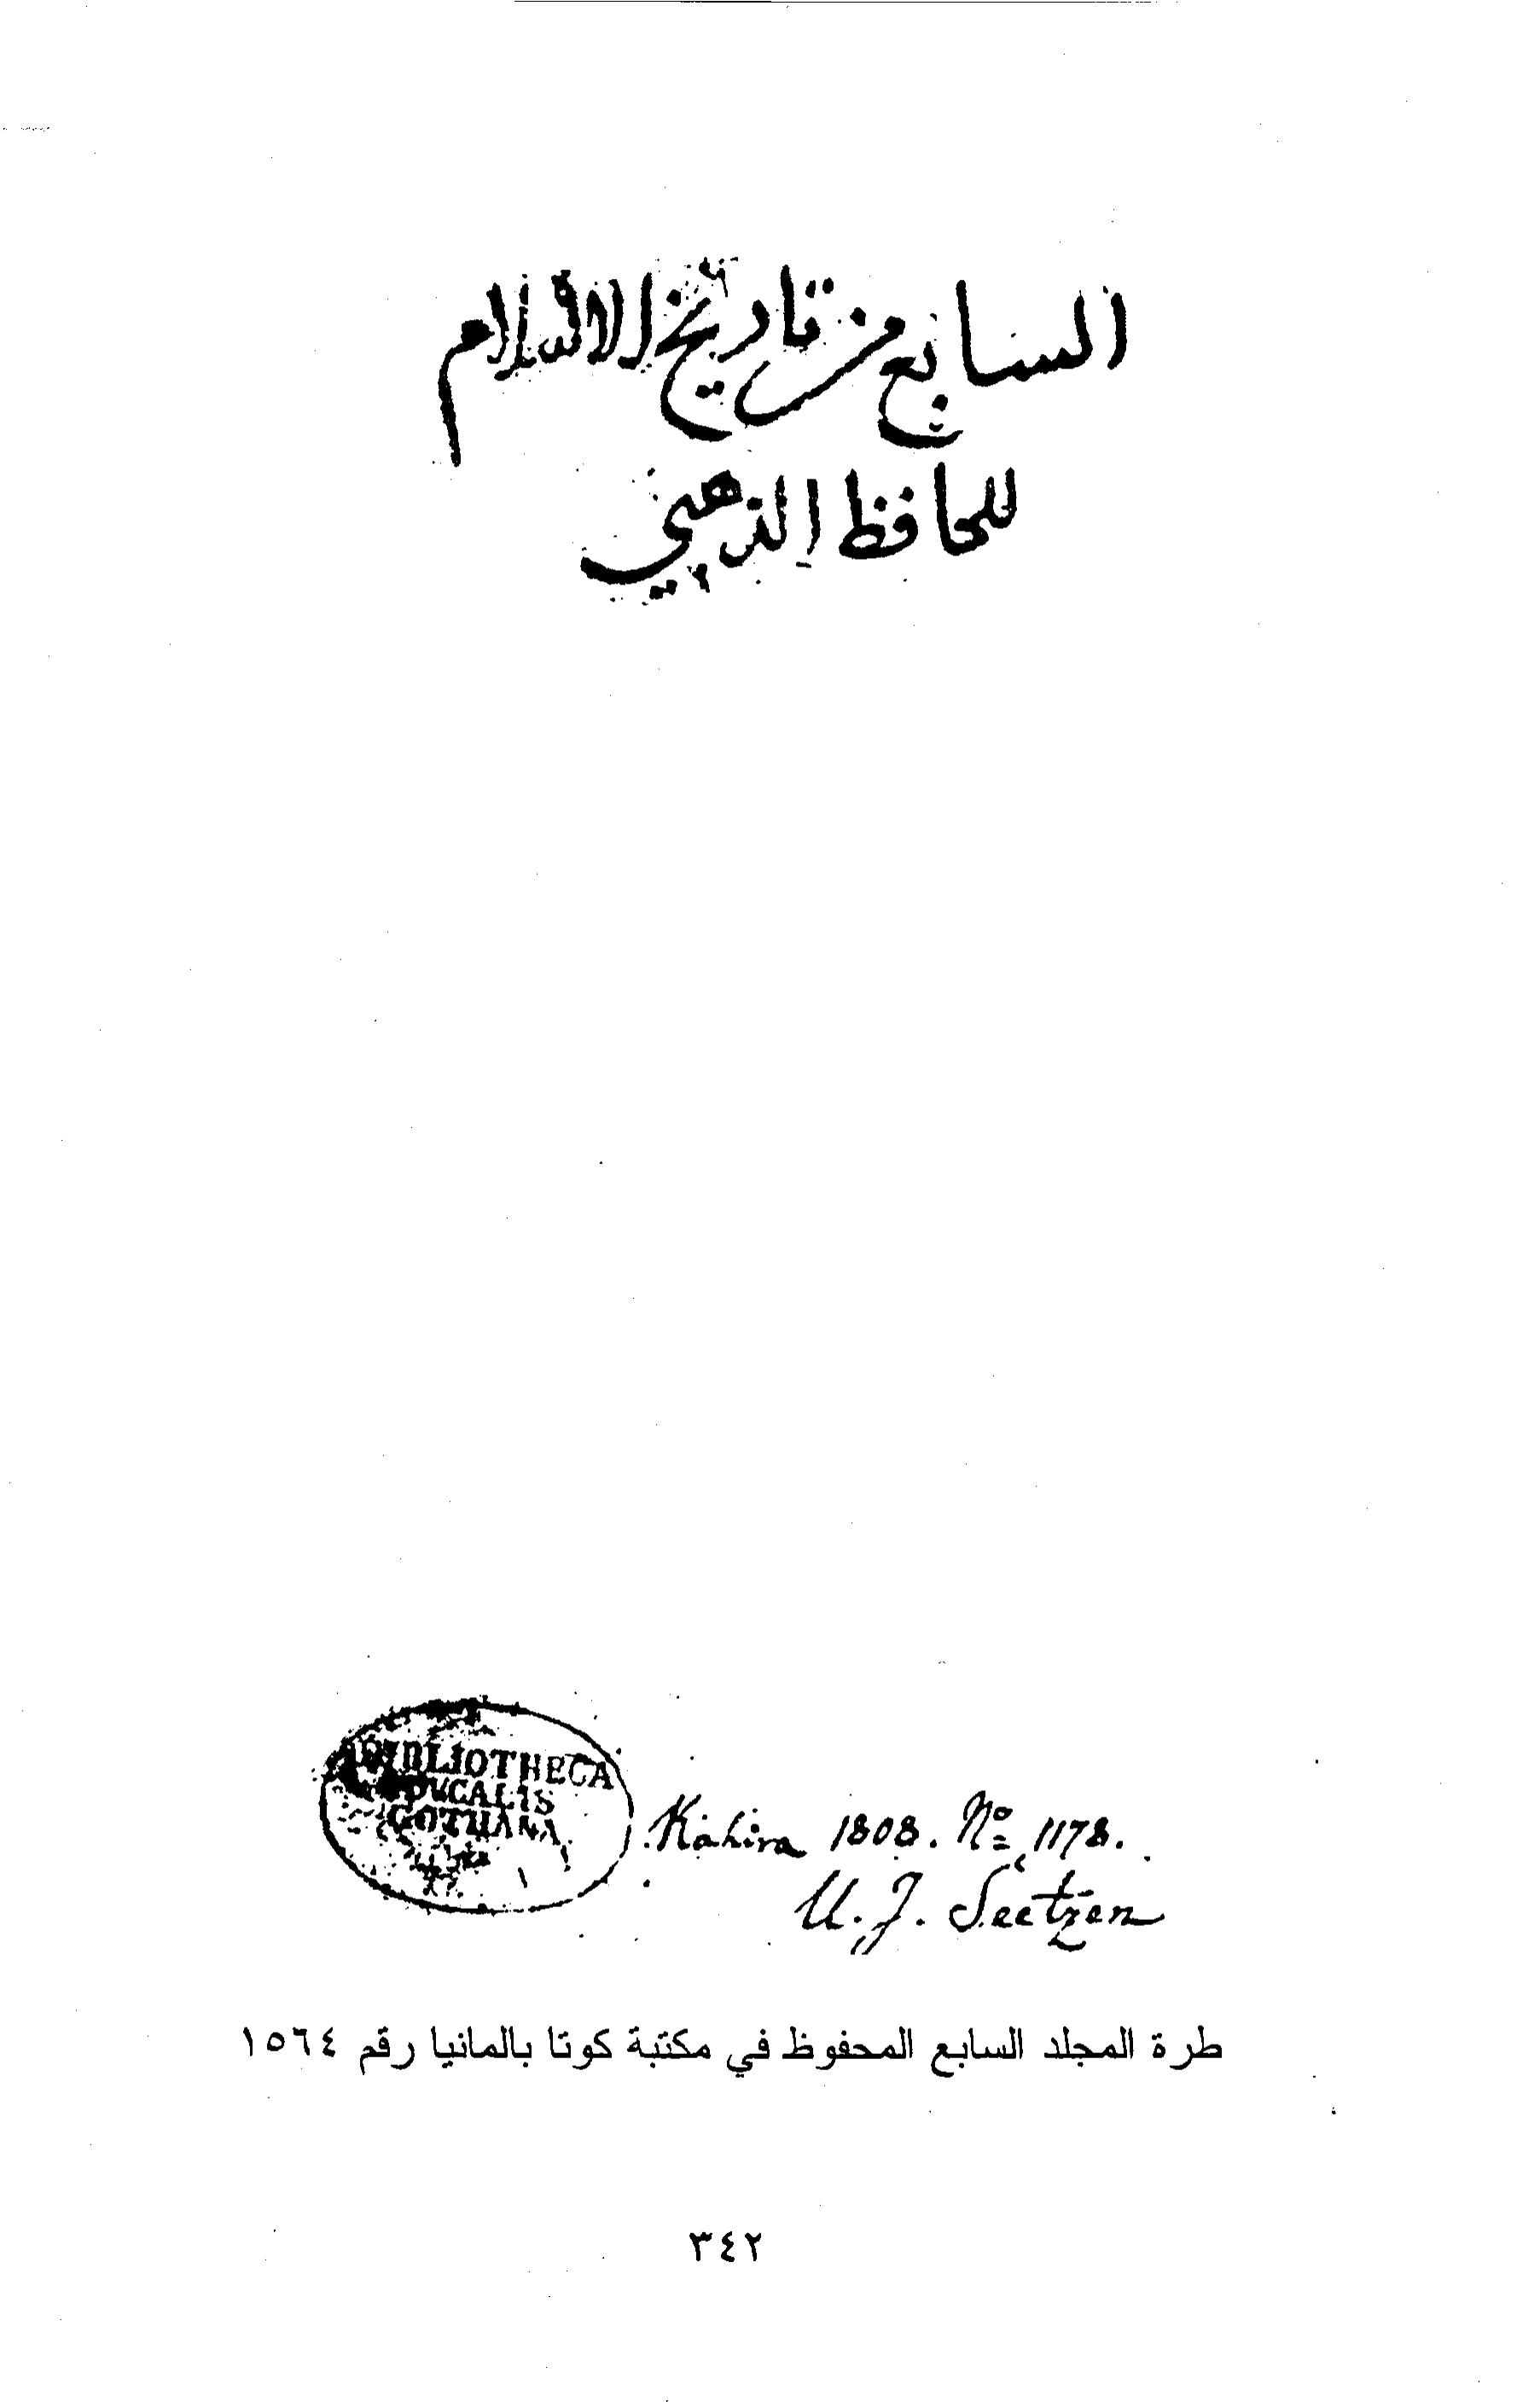 السابع من تاريخ الاسلام
للحافظ الذهبي
BIBLIOTHECA
DUCALIS
GOTHANA
Kahira 1808. No. 1178.
U. J. Seetzen
طرة المجلد السابع المحفوظ في مكتبة كوتا بالمانيا رقم ١٥٦٤
٣٤٢